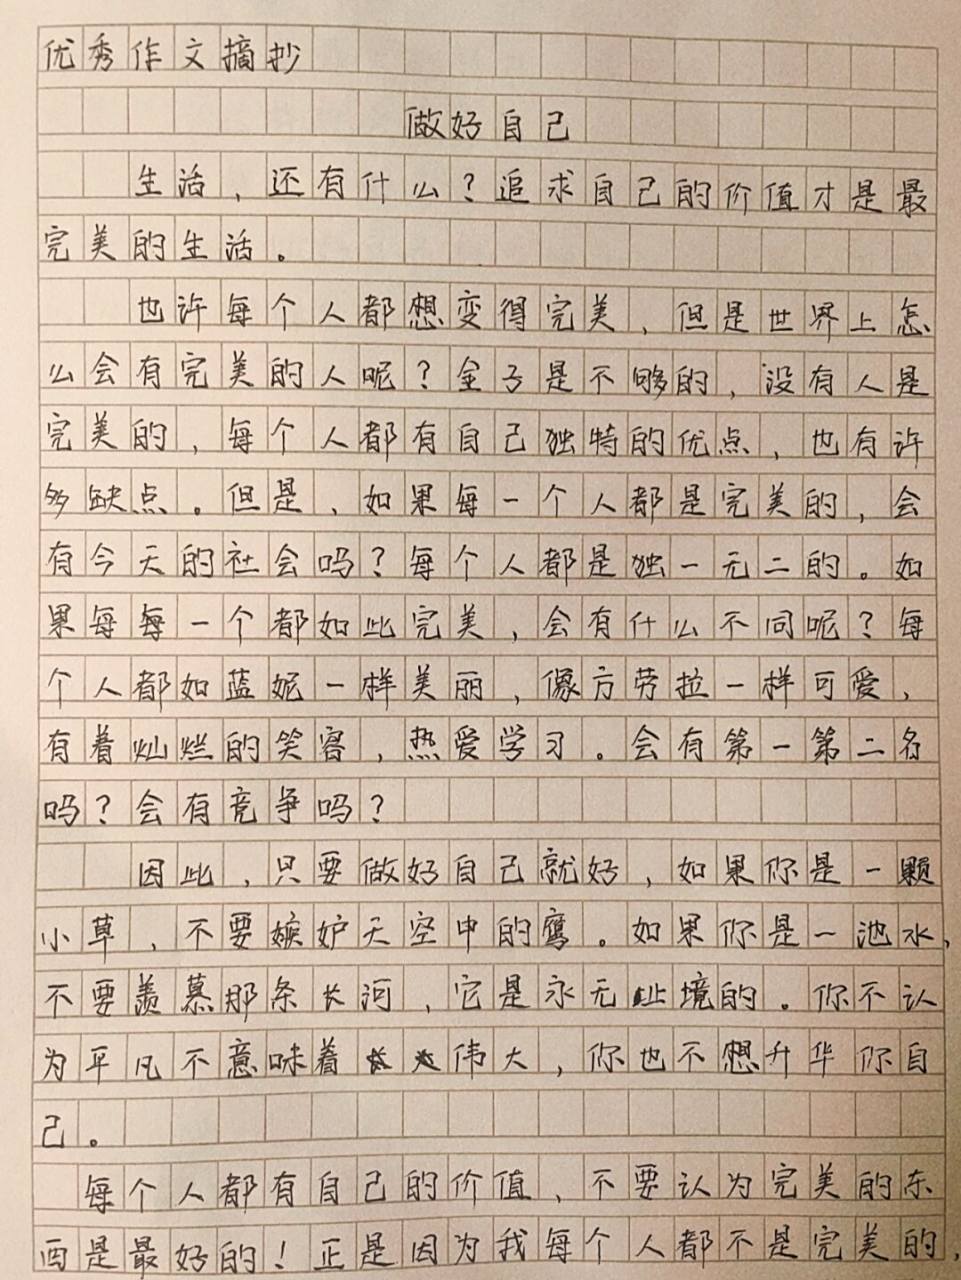 优秀作文摘抄
做好自己
生活，还有什么？追求自己的价值才是最
完美的生活。
也许每个人都想变得完美，但是世界上怎
么会有完美的人呢？金子是不够的，没有人是
完美的，每个人都有自己独特的优点，也有许
多缺点。但是，如果每一个人都是完美的，会
有今天的社会吗？每个人都是独一无二的。如
果每每一个都如此完美，会有什么不同呢？每
个人都如蓝妮一样美丽，像方劳拉一样可爱，
有着灿烂的笑容，热爱学习。会有第一第二名
吗？会有竞争吗？
因此，只要做好自己就好，如果你是一颗
小草，不要嫉妒天空中的鹰。如果你是一池水，
不要羡慕那条长河，它是永无止境的。你不认
为平凡不意味着伟大，你也不想升华你自
己。
每个人都有自己的价值，不要认为完美的东
西是最好的！正是因为我每个人都不是完美的，